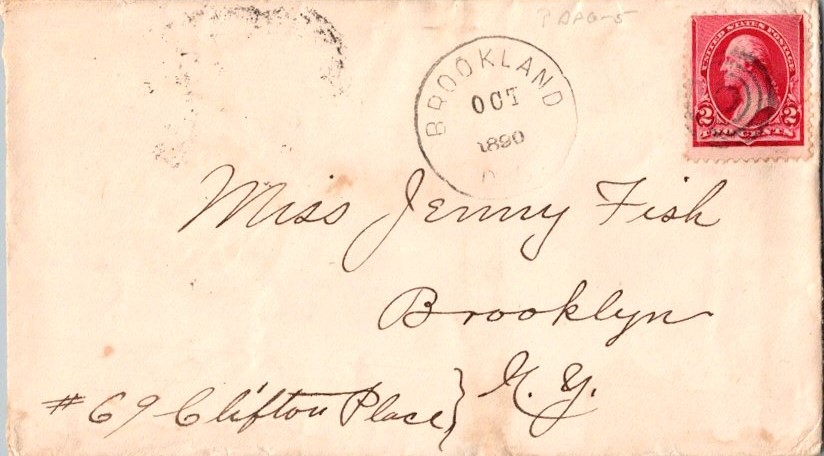 BROOKLAND
OCT
1890
UNITED STATES POSTAGE
2 2
TWO CENTS
Miss Jenny Fish
Brooklyn
N. Y.
# 69 Clifton Place }